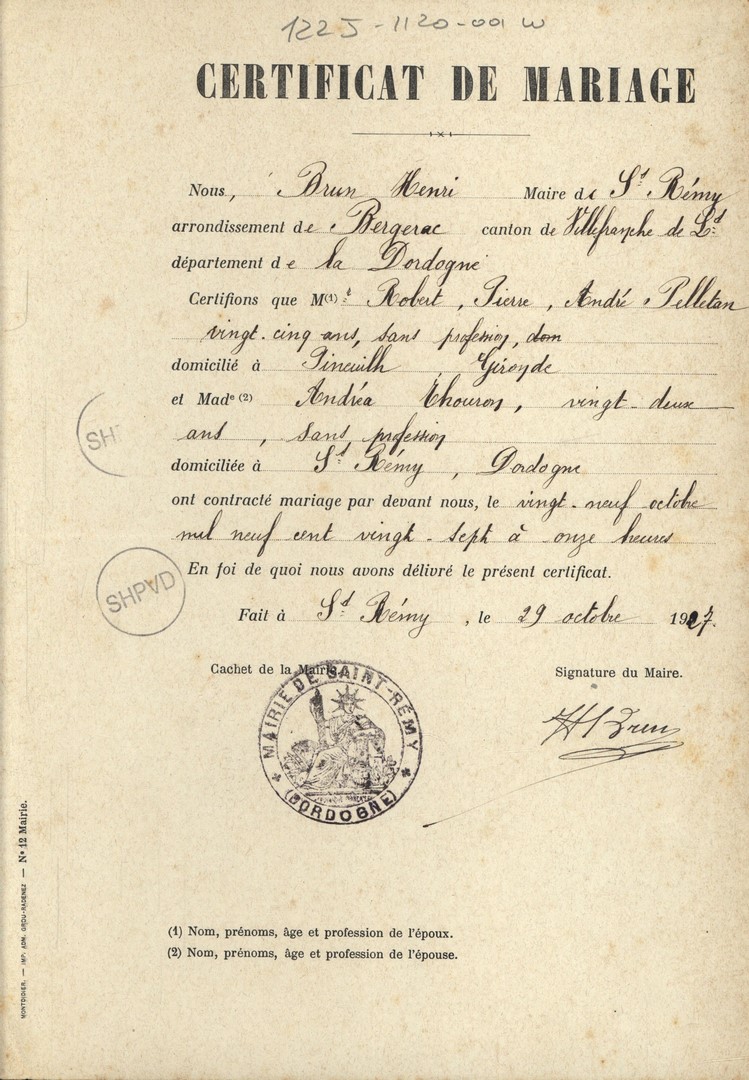 1225-1120-001 W
CERTIFICAT DE MARIAGE
Nous, Brun Henri Maire de St Rémy
arrondissement de Bergerac canton de Villefranche de Ld
département de la Dordogne
Certifions que M(1) r Robert, Pierre, André Pelletan
vingt-cinq ans, sans profession, dom
domicilié à Pineuilh, Gironde
et Made (2) Andréa Thouron, vingt-deux
ans, sans profession
domiciliée à St Rémy, Dordogne
ont contracté mariage par devant nous, le vingt-neuf octobre
mil neuf cent vingt-sept à onze heures
En foi de quoi nous avons délivré le présent certificat.
Fait à St Rémy, le 29 octobre 1927.
Cachet de la Mairie. Signature du Maire.
MAIRIE DE SAINT-RÉMY
(DORDOGNE)
H Brun
SH
SHPVD
(1) Nom, prénoms, âge et profession de l'époux.
(2) Nom, prénoms, âge et profession de l'épouse.
MONTDIDIER. — IMP. ADM. GROU-RADENEZ — No 12 Mairie.